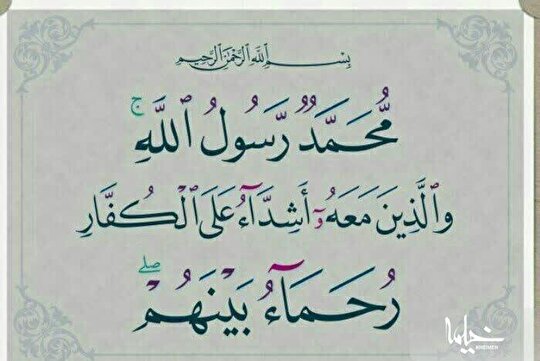 بِسْمِ اللَّهِ الرَّحْمَٰنِ الرَّحِيمِ
مُّحَمَّدٌ رَّسُولُ ٱللَّهِ ۚ
وَٱلَّذِينَ مَعَهُۥٓ أَشِدَّآءُ عَلَى ٱلْكُفَّارِ
رُحَمَآءُ بَيْنَهُمْ ۖ
خیلیما
KHEIMEH